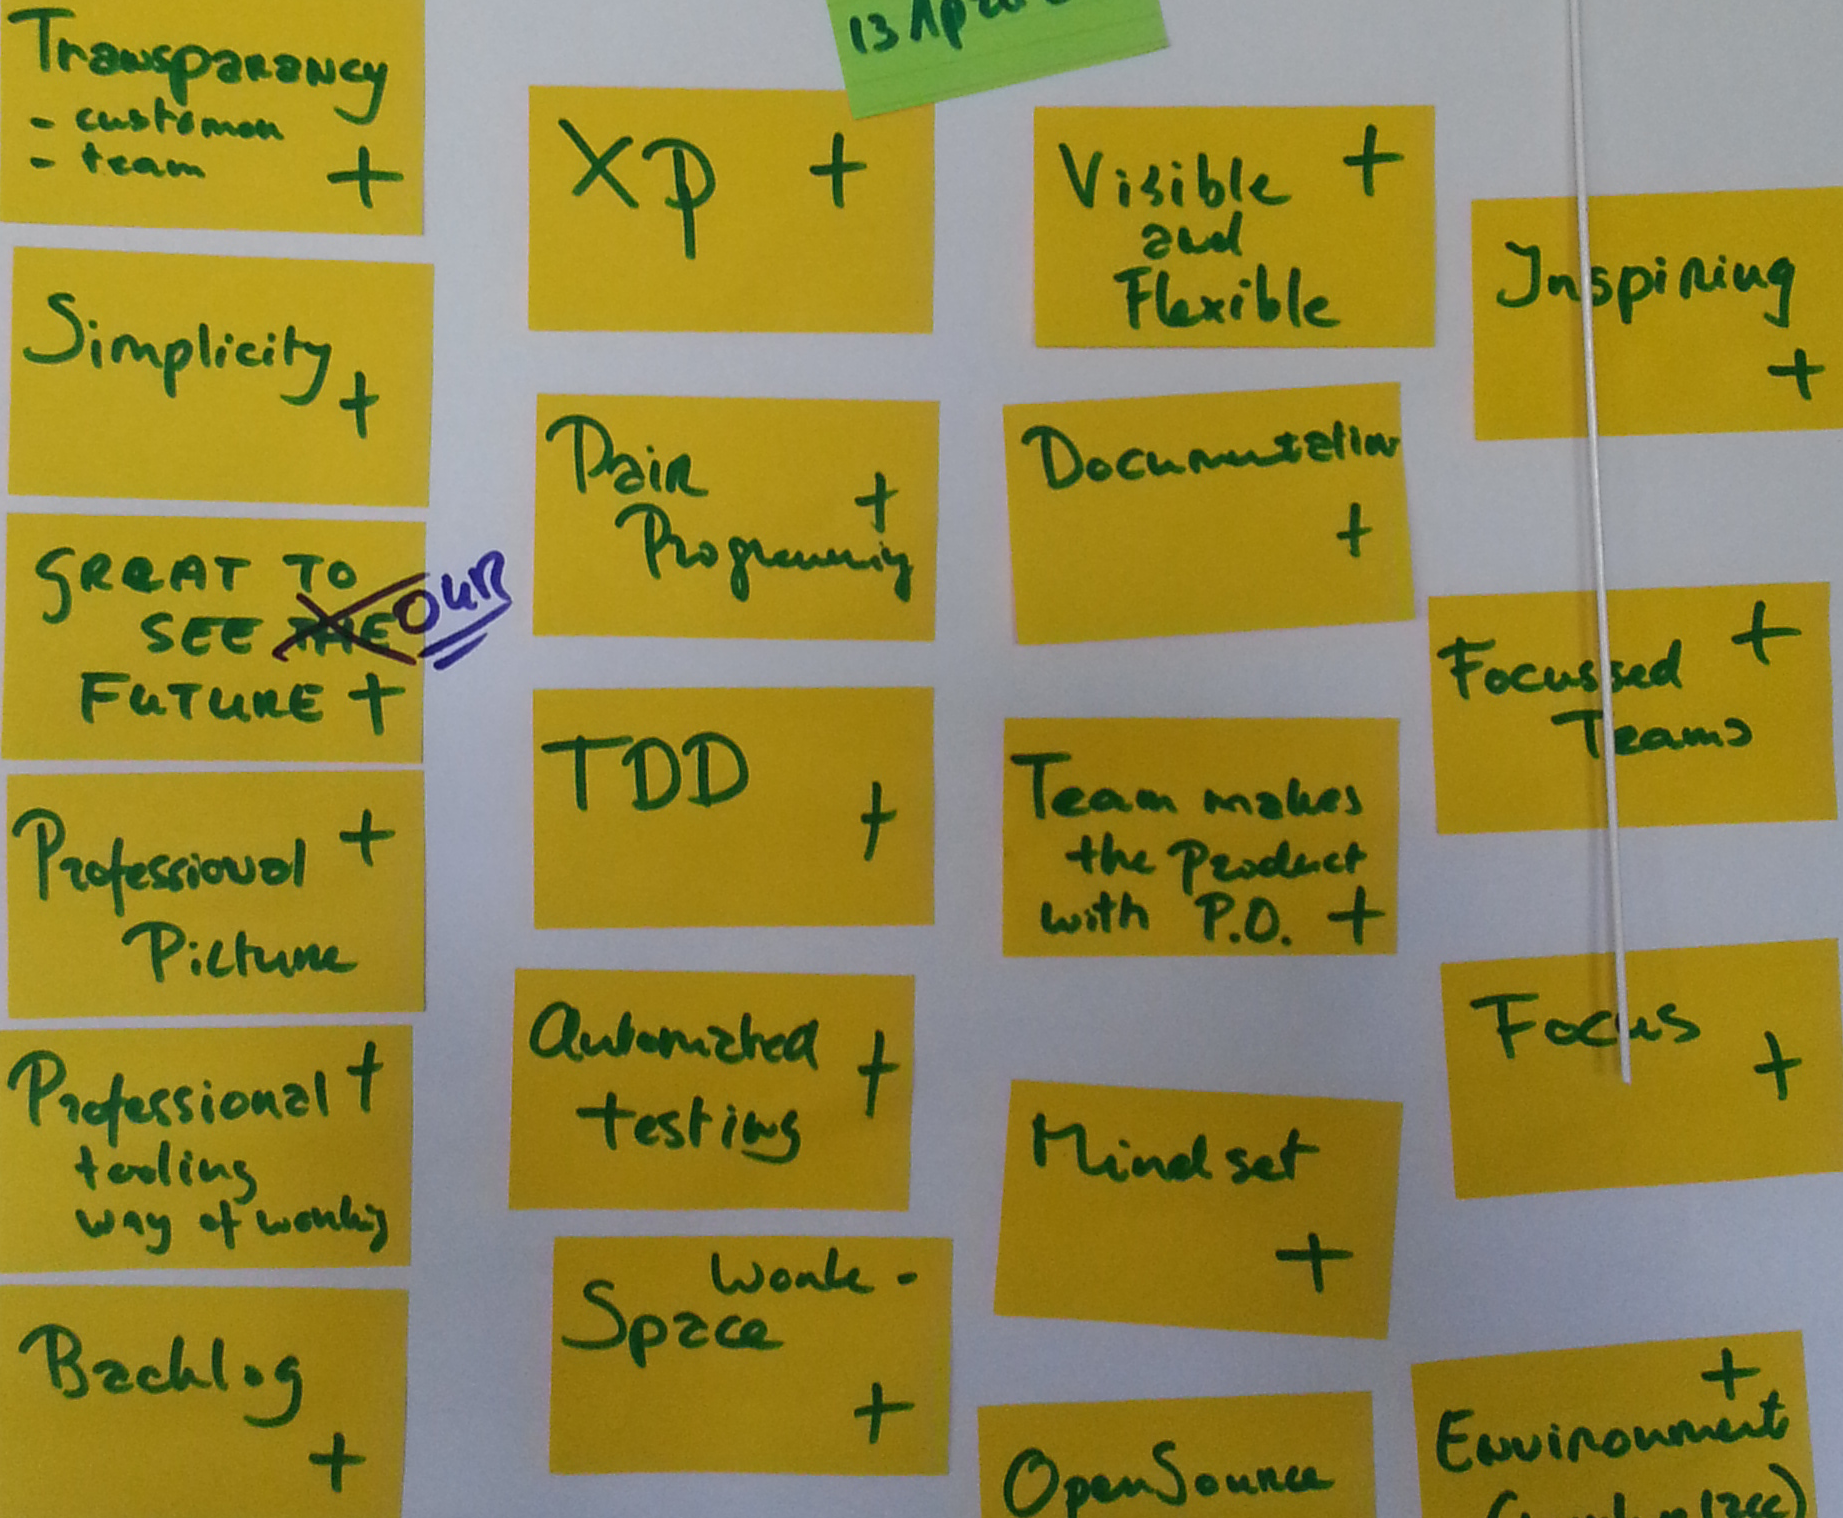 Transparancy
- customer
- team
+
Simplicity
+
GREAT TO
SEE THE OUR
FUTURE +
Professional +
Picture
Professional +
tooling
way of working
Backlog
+
13 Apr
XP +
Pair
Programming +
TDD
+
Automated +
testing
Work-
Space
+
Visible +
and
Flexible
Documentation
+
Team makes
the Product
with P.O. +
Mindset
+
OpenSource
Inspiring
+
Focussed +
Teams
Focus
+
+
Environment